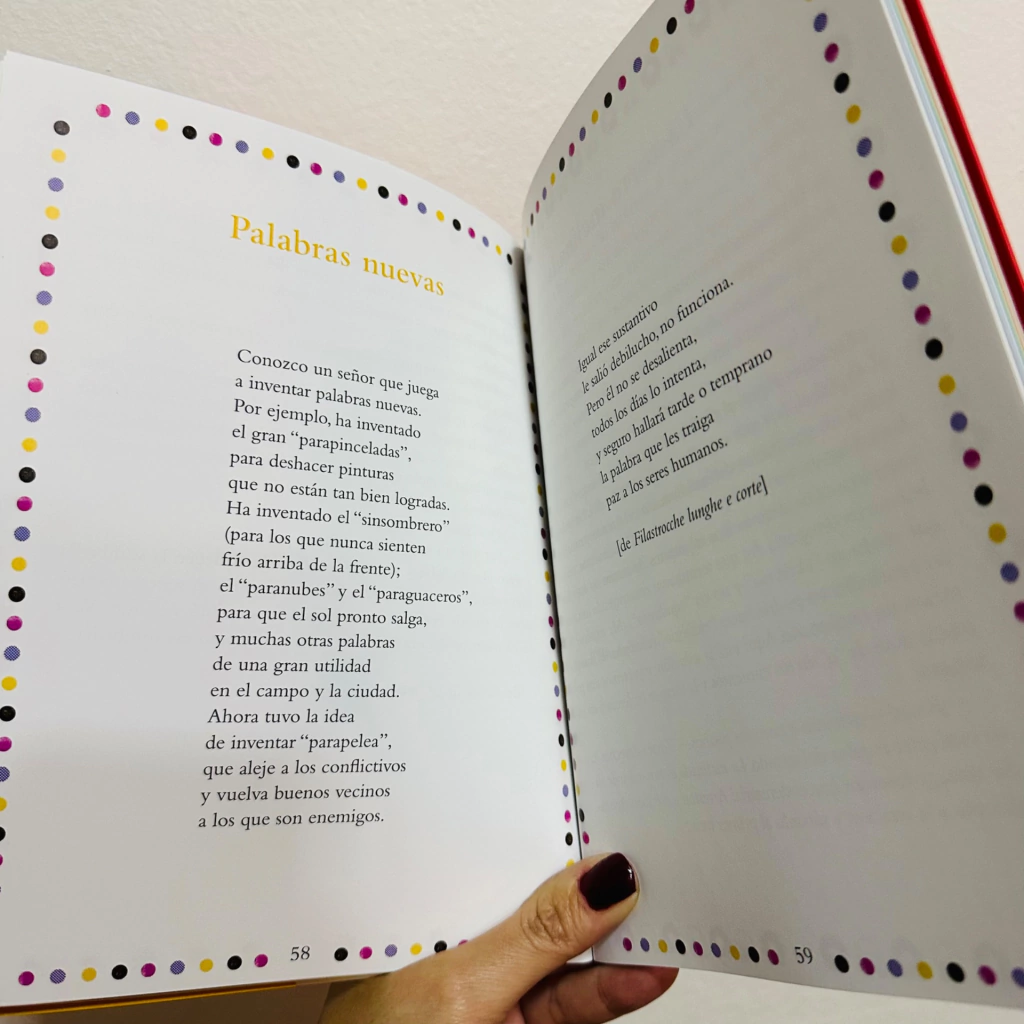 Palabras nuevas
Conozco un señor que juega
a inventar palabras nuevas.
Por ejemplo, ha inventado
el gran “parapinceladas”,
para deshacer pinturas
que no están tan bien logradas.
Ha inventado el “sinsombrero”
(para los que nunca sienten
frío arriba de la frente);
el “paranubes” y el “paraguaceros”,
para que el sol pronto salga,
y muchas otras palabras
de una gran utilidad
en el campo y la ciudad.
Ahora tuvo la idea
de inventar “parapelea”,
que aleje a los conflictivos
y vuelva buenos vecinos
a los que son enemigos.
58
Igual ese sustantivo
le salió debilucho, no funciona.
Pero él no se desalienta,
todos los días lo intenta,
y seguro hallará tarde o temprano
la palabra que les traiga
paz a los seres humanos.
[de Filastrocche lunghe e corte]
59